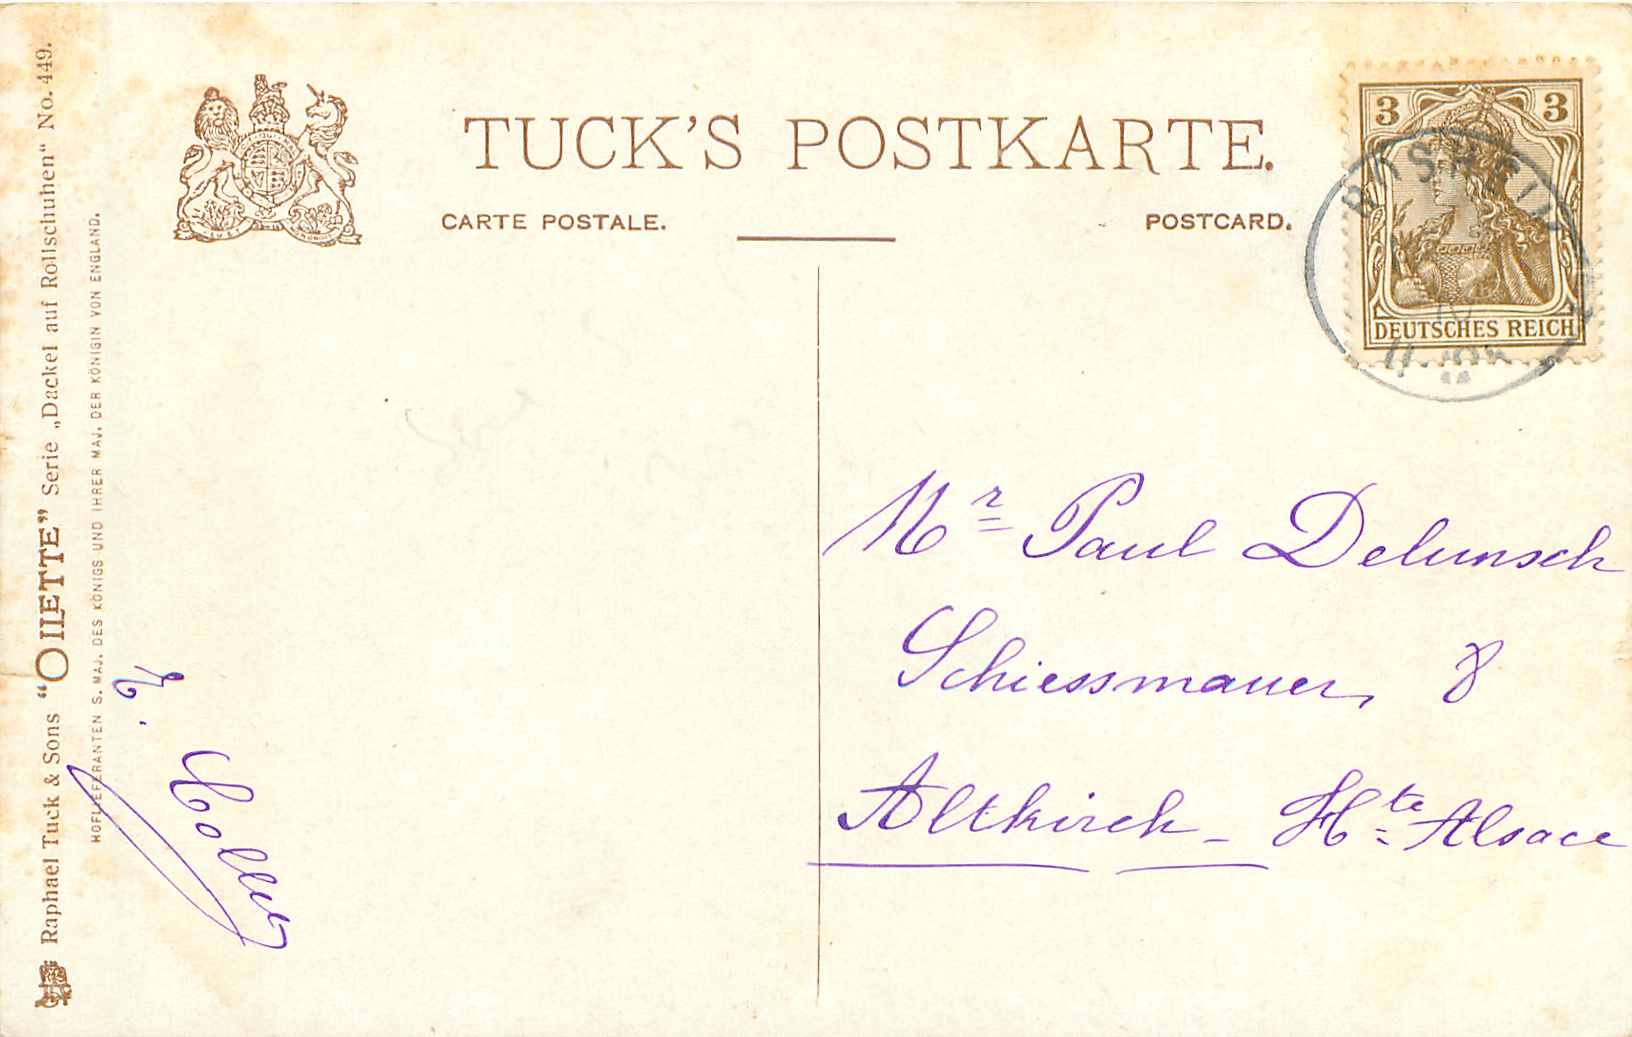 TUCK'S POSTKARTE.
CARTE POSTALE.
POSTCARD.
3 3
DEUTSCHES REICH
Raphael Tuck & Sons “OILETTE” Serie „Dackel auf Rollschuhen“ No. 449.
HOFLIEFERANTEN S. MAJ. DES KÖNIGS UND IHRER MAJ. DER KÖNIGIN VON ENGLAND.
Mr Paul Delunsch
Schiessmauer, 8
Altkirch - Hte Alsace